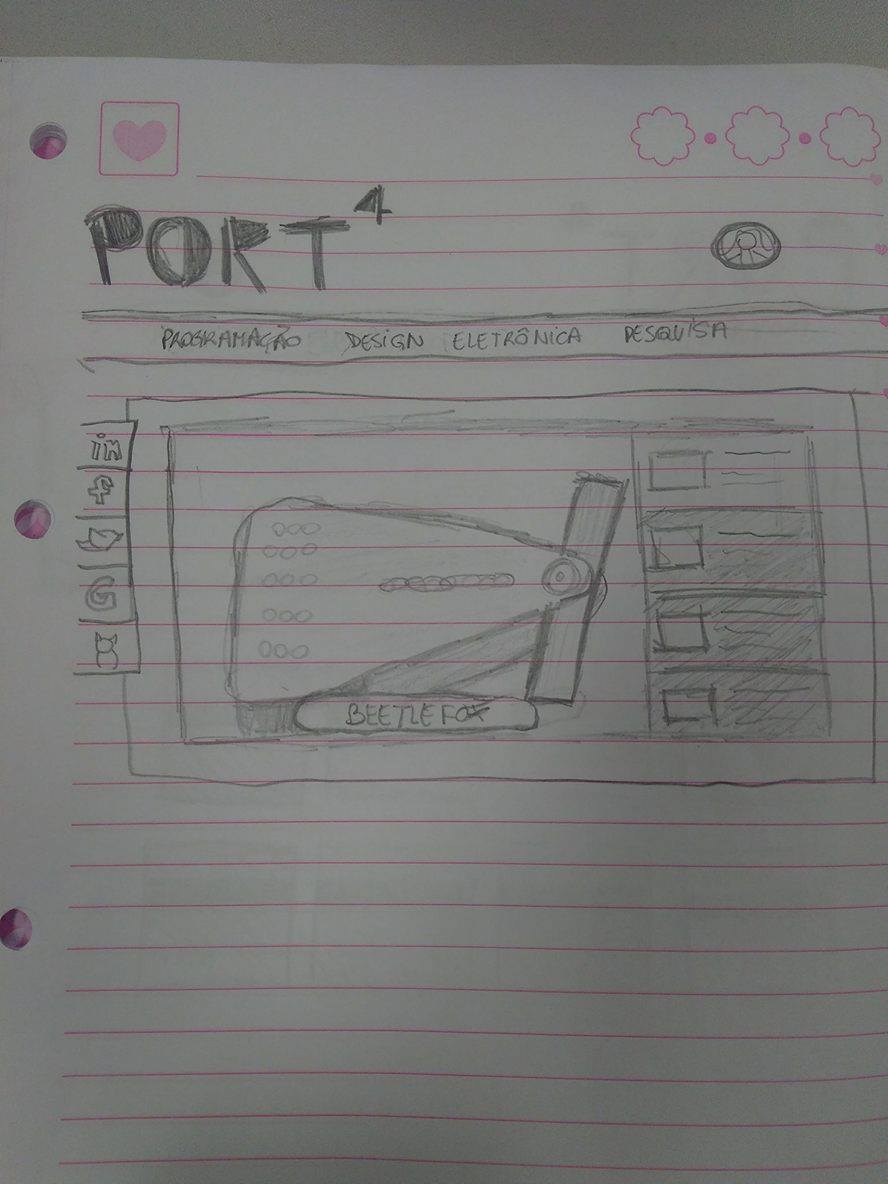 PORT⁴
PROGRAMAÇÃO DESIGN ELETRÔNICA PESQUISA
in
BEETLE FOX